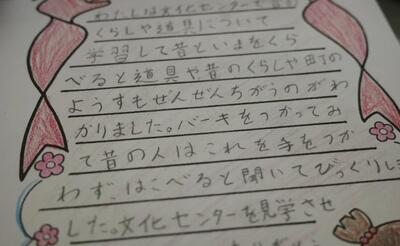 わたしは文化センターで昔の
くらしや道具について
学習して昔といまをくら
べると道具や昔のくらしや町の
ようすもぜんぜんちがうのがわ
かりました。バーキをつかってみ
て昔の人はこれを手をつか
わず、はこべると聞いてびっくりしま
した。文化センターを見学させ